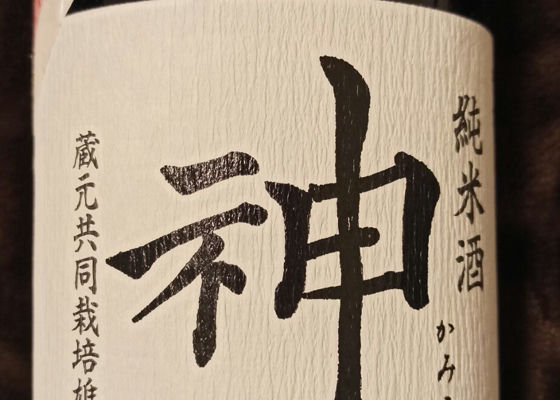 純米酒
かみ
神
蔵元共同栽培雄